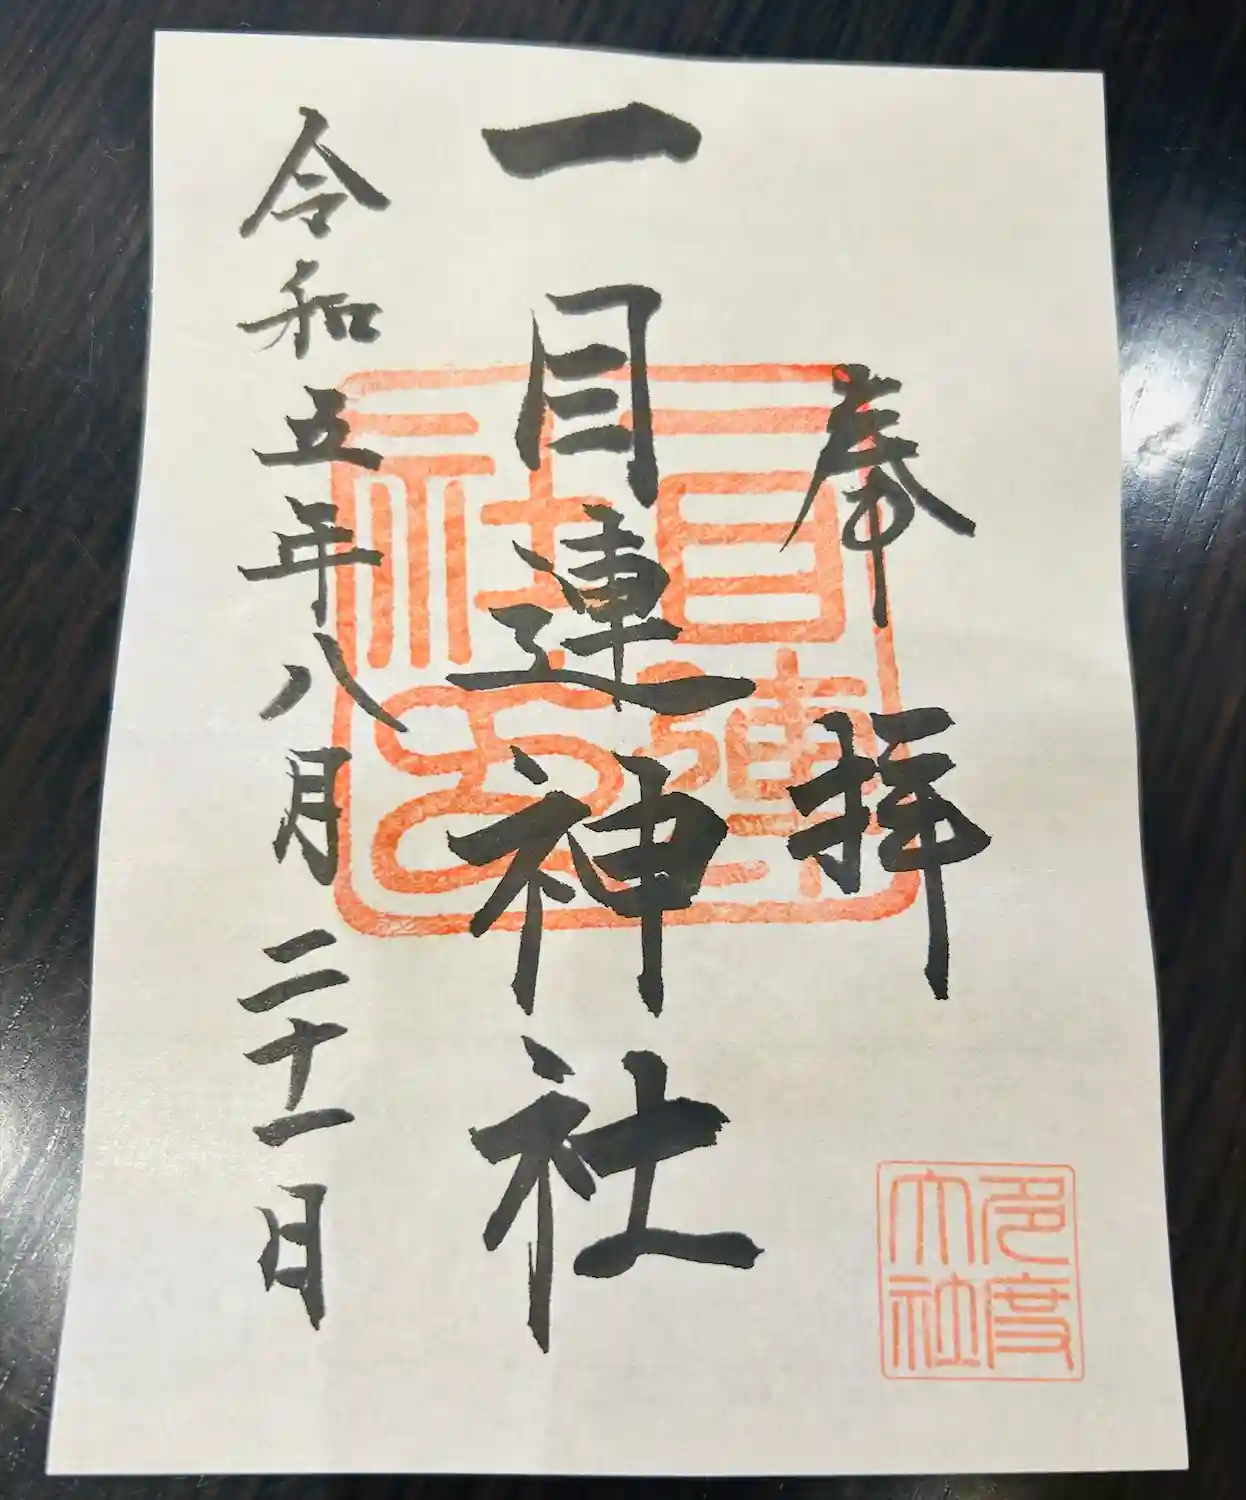 奉拝
一目連神社
令和五年八月二十一日
多度大社